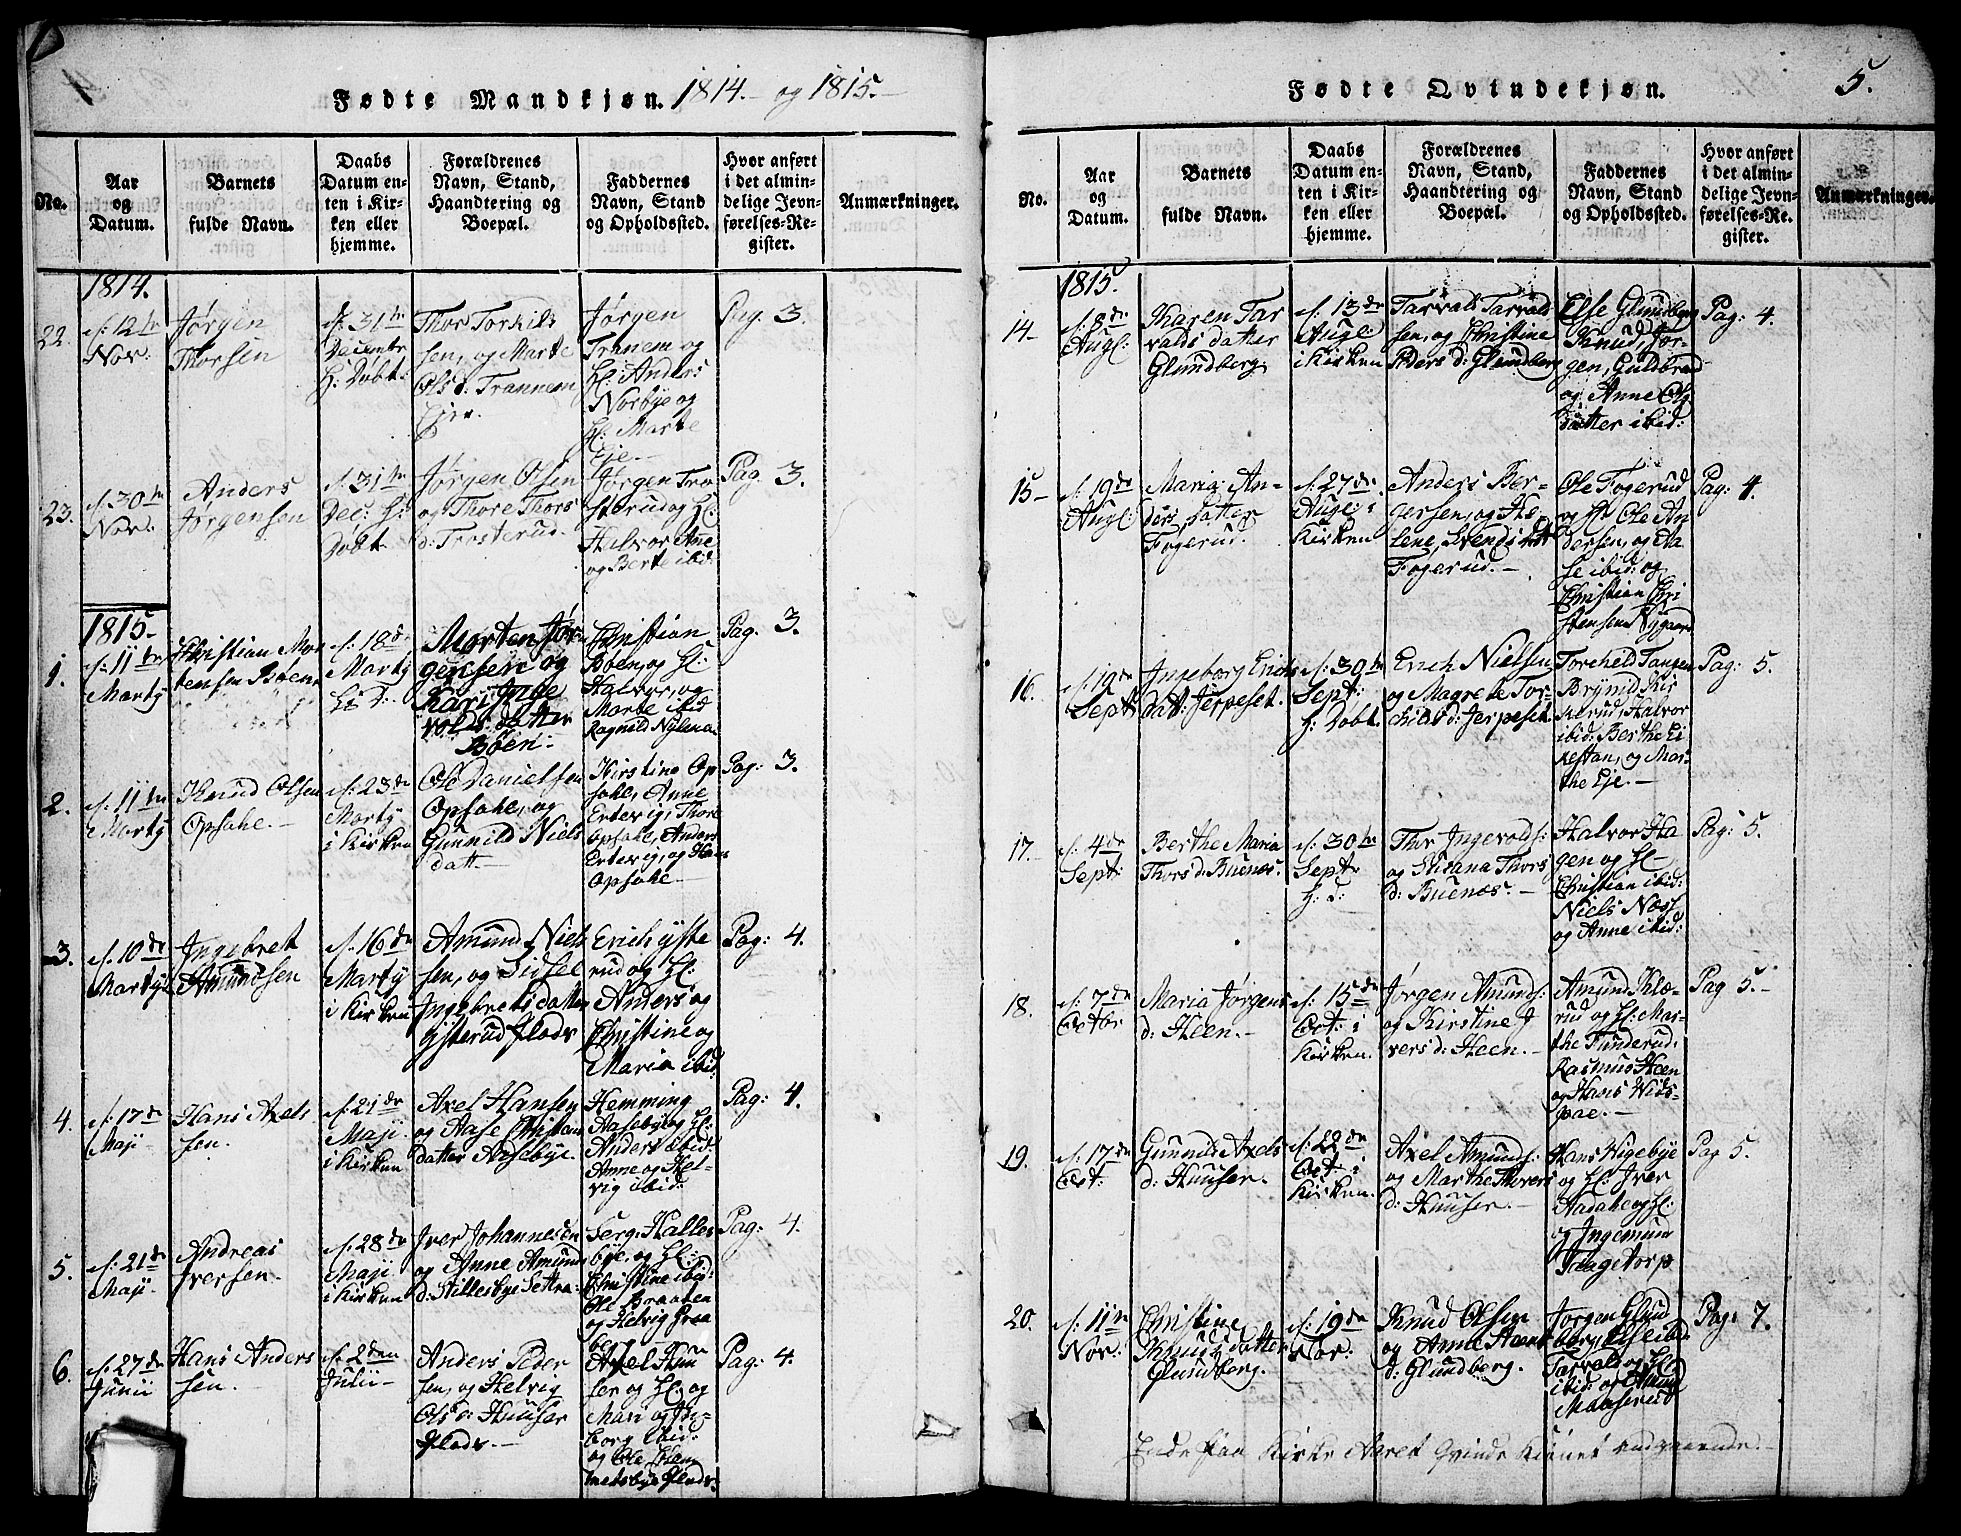 Fødte Mandkjøn. 1814. og 1815.
No.
Aar
og
Datum.
Barnets
fulde Navn.
Daabs
Datum en-
ten i Kir-
ken eller
hjemme.
Forældrenes
Navn, Stand,
Haandtering og
Boepæl.
Faddernes
Navn, Stand
og Opholdssted.
Hvor anført
i det almin-
delige Jevn-
førelses-Re-
gister.
Anmærkninger.
1814.
22.
d: 12te
Nov:
Jørgen
Thorsen
d: 31te
Decembr
h: Døbt.
Thor Torkils
sen, og Marte
Ols d: Trannem
Eje.
Jørgen
Tranem og
H: Anders
Norbye og
H: Marte
Eje.
Pag. 3.
23.
d: 30te
Nov:
Anders
Jørgensen
d: 31te
Dec: h:
Døbt.
Jørgen Olsen
og Thore Thors
d: Trosterud.
Jørgen Tro
sterud og H:
Halvor Ane
og Berte ibid:
Pag. 3.
1815.
1.
d: 11te
Martj
Christian Mor
tensen Bøen
d: 18de
Martj
Morten Jør
gensen og
Kari Inge
volds datter
Bøen.
Christian
Bøen, og H:
Halvor, og
Marte ibid
Ragnild
Pag. 3.
2.
d: 11te
Martj
Knud Olsen
Opsahe.
d: 23de
Martj
i Kirken
Ole Danielsen
Opsahe, og
Gunnild Niels
datt.
Kirstine Op
sahe, Anne
Ertevig, Thore
Opsahe, Anders
Ertevig, og Hans
Opsahe
Pag: 3.
3.
d: 10de
Martj
Ingebret
Amundsen
d: 16de
Martj
i Kirken
Amund Niels
sen, og Sidsel
Ingebrets datter
Ysterud Plads
Erich Yste
rud og H:
Anders og
Christine og
Maria ibid:
Pag: 4.
4.
d: 17de
Maji
Hans Axels
sen.
d: 21de
Maji
i Kirken
Axel Hansen
og Aase Christians
datter Aasebye.
Hemming
Aasebye og H:
Anders ibid:
Anne og Hel-
vig ibid:
Pag: 4.
5.
d: 21de
Maji
Andreas
Iversen.
d: 28de
Maji
i Kirken
Iver Johannesen
og Anne Amunds
d: Hillesbye
Serg: Halles
bye, og H:
Christine ibid:
Ole Braaten
og Helvig Fraa
berg
Pag: 4.
6.
d: 27de
Junii
Hans Anders
sen.
d: 2den
Julii
Anders Peder
sen, og Helvig
Ols d: Huuser
Plads.
Axel Huu
ser og H: og
Mari og In-
borg ibid:
og Ole Hem
metsbye Plads.
Pag: 4.
Fødte Qvindekjøn.
5.
No.
Aar
og
Datum.
Barnets
fulde Navn.
Daabs
Datum en-
ten i Kir-
ken eller
hjemme.
Forældrenes
Navn, Stand,
Haandtering og
Boepæl.
Faddernes
Navn, Stand
og Opholdssted.
Hvor anført
i det almin-
delige Jevn-
førelses-Re-
gister.
Anmærkninger.
1815.
14.
d: 8de
Aug:
Karen Tar
valds datter
Glundberg
d: 13de
Aug:
i Kirken
Tarvald Tarvald
sen, og Christine
Peders d: Glundberg
Else Glundberg
Knud, Jør-
gen, Guldbrand
og Anne Ols
datter ibid:
Pag: 4.
15
d: 19de
Aug:
Maria An-
ders datter
Fogerud.
d: 27de
Aug: i
Kirken
Anders Ber-
gersen, og He-
lene Svends datt
Fogerud.
Ole Fogerud
og H: Ole An
dersen, og El
se ibid: og
Christian Chri
stensen Nygaard
Pag: 4.
16.
d: 19de
Sept:
Ingeborg Erichs
datt: Jerpeset.
d: 30te
Sept:
h: Døbt.
Erich Nielsen
og Magrete Tor-
childs d: Jerpeset.
Torchild Tangen
Brynild Kir
kerud, Halvor
ibid: Berthe Ei
kestan, og Mar-
the Eje.
Pag: 5.
17.
d: 4de
Sept:
Berthe Maria
Thors d: Buenæs.
d: 30te
Sept:
h: d:
Thor Ingevolds:
og Susana Thors
d: Buenæs.
Halvor Ha
gen og H:
Christian ibid:
Niels Næss
og Anne ibid:
Pag: 5.
18.
d: 7de
Octbr
Maria Jørgens
d: Heen.
d: 15de
Oct: i
Kirken.
Jørgen Amunds:
og Kirstine I
vers d: Heen.
Amund Klæ-
rud og H: Mar-
the Funderud,
Rasmus Heen
og Hans
Pag 5.
19.
d: 17de
Oct:
Gunnild Axels
d: Huuser.
d: 22de
Oct: i
Kirken.
Axel Amunds:
og Marthe Thores
d: Huuser.
Hans Rigebye
og H: Iver
Aadahe og H:
og Ingemund
Taagetorp
Pag 5.
20.
d: 11te
Nov:
Christine
Knuds datter
Glundberg.
d: 19de
Nov:
Knud Olsen
og Anne Hans
d: Glundberg.
Jørgen Glund
berg, Else ibid
Tarvald og H:
ibid: og
Maaserud
Pag: 7.
Ende paa Kirke Aaret Qvinde Kiønet vedgaaende.